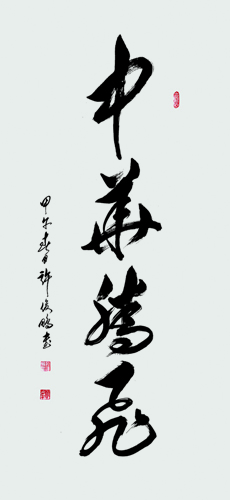 中華騰飛
甲午春月許俊鵬書